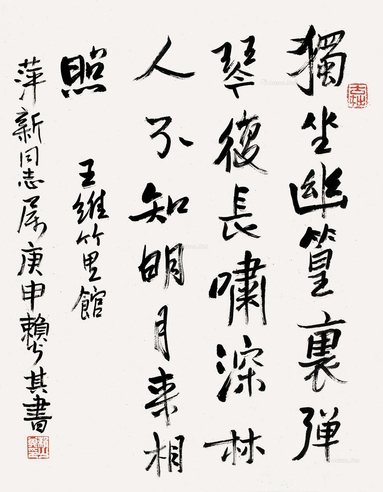 獨坐幽篁裏彈
琴復長嘯深林
人不知明月來相
照 王維竹里館
萍新同志属庚申賴少其書